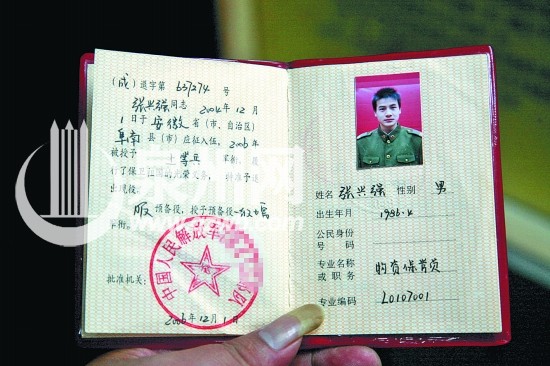 (成)退字第 637274 号
张兴强同志 2004年12月
1日于 安徽 省(市、自治区)
阜南 县(市)应征入伍, 2006年
被授予 上等兵 军衔,
行了保卫祖国的光荣义务,
出现役。
服 预备役,授予预备役
衔。
中国人民解放军 部队
批准机关:
2006年12月1日
姓名 张兴强 性别 男
出生年月 1986.4
公民身份
号 码
专业名称
或 职 务 物资保管员
专业编码 L0107001